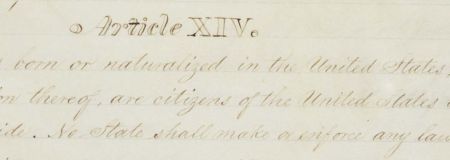 Article XIV.
born or naturalized in the United States,
thereof, are citizens of the United States
No State shall make or enforce any law